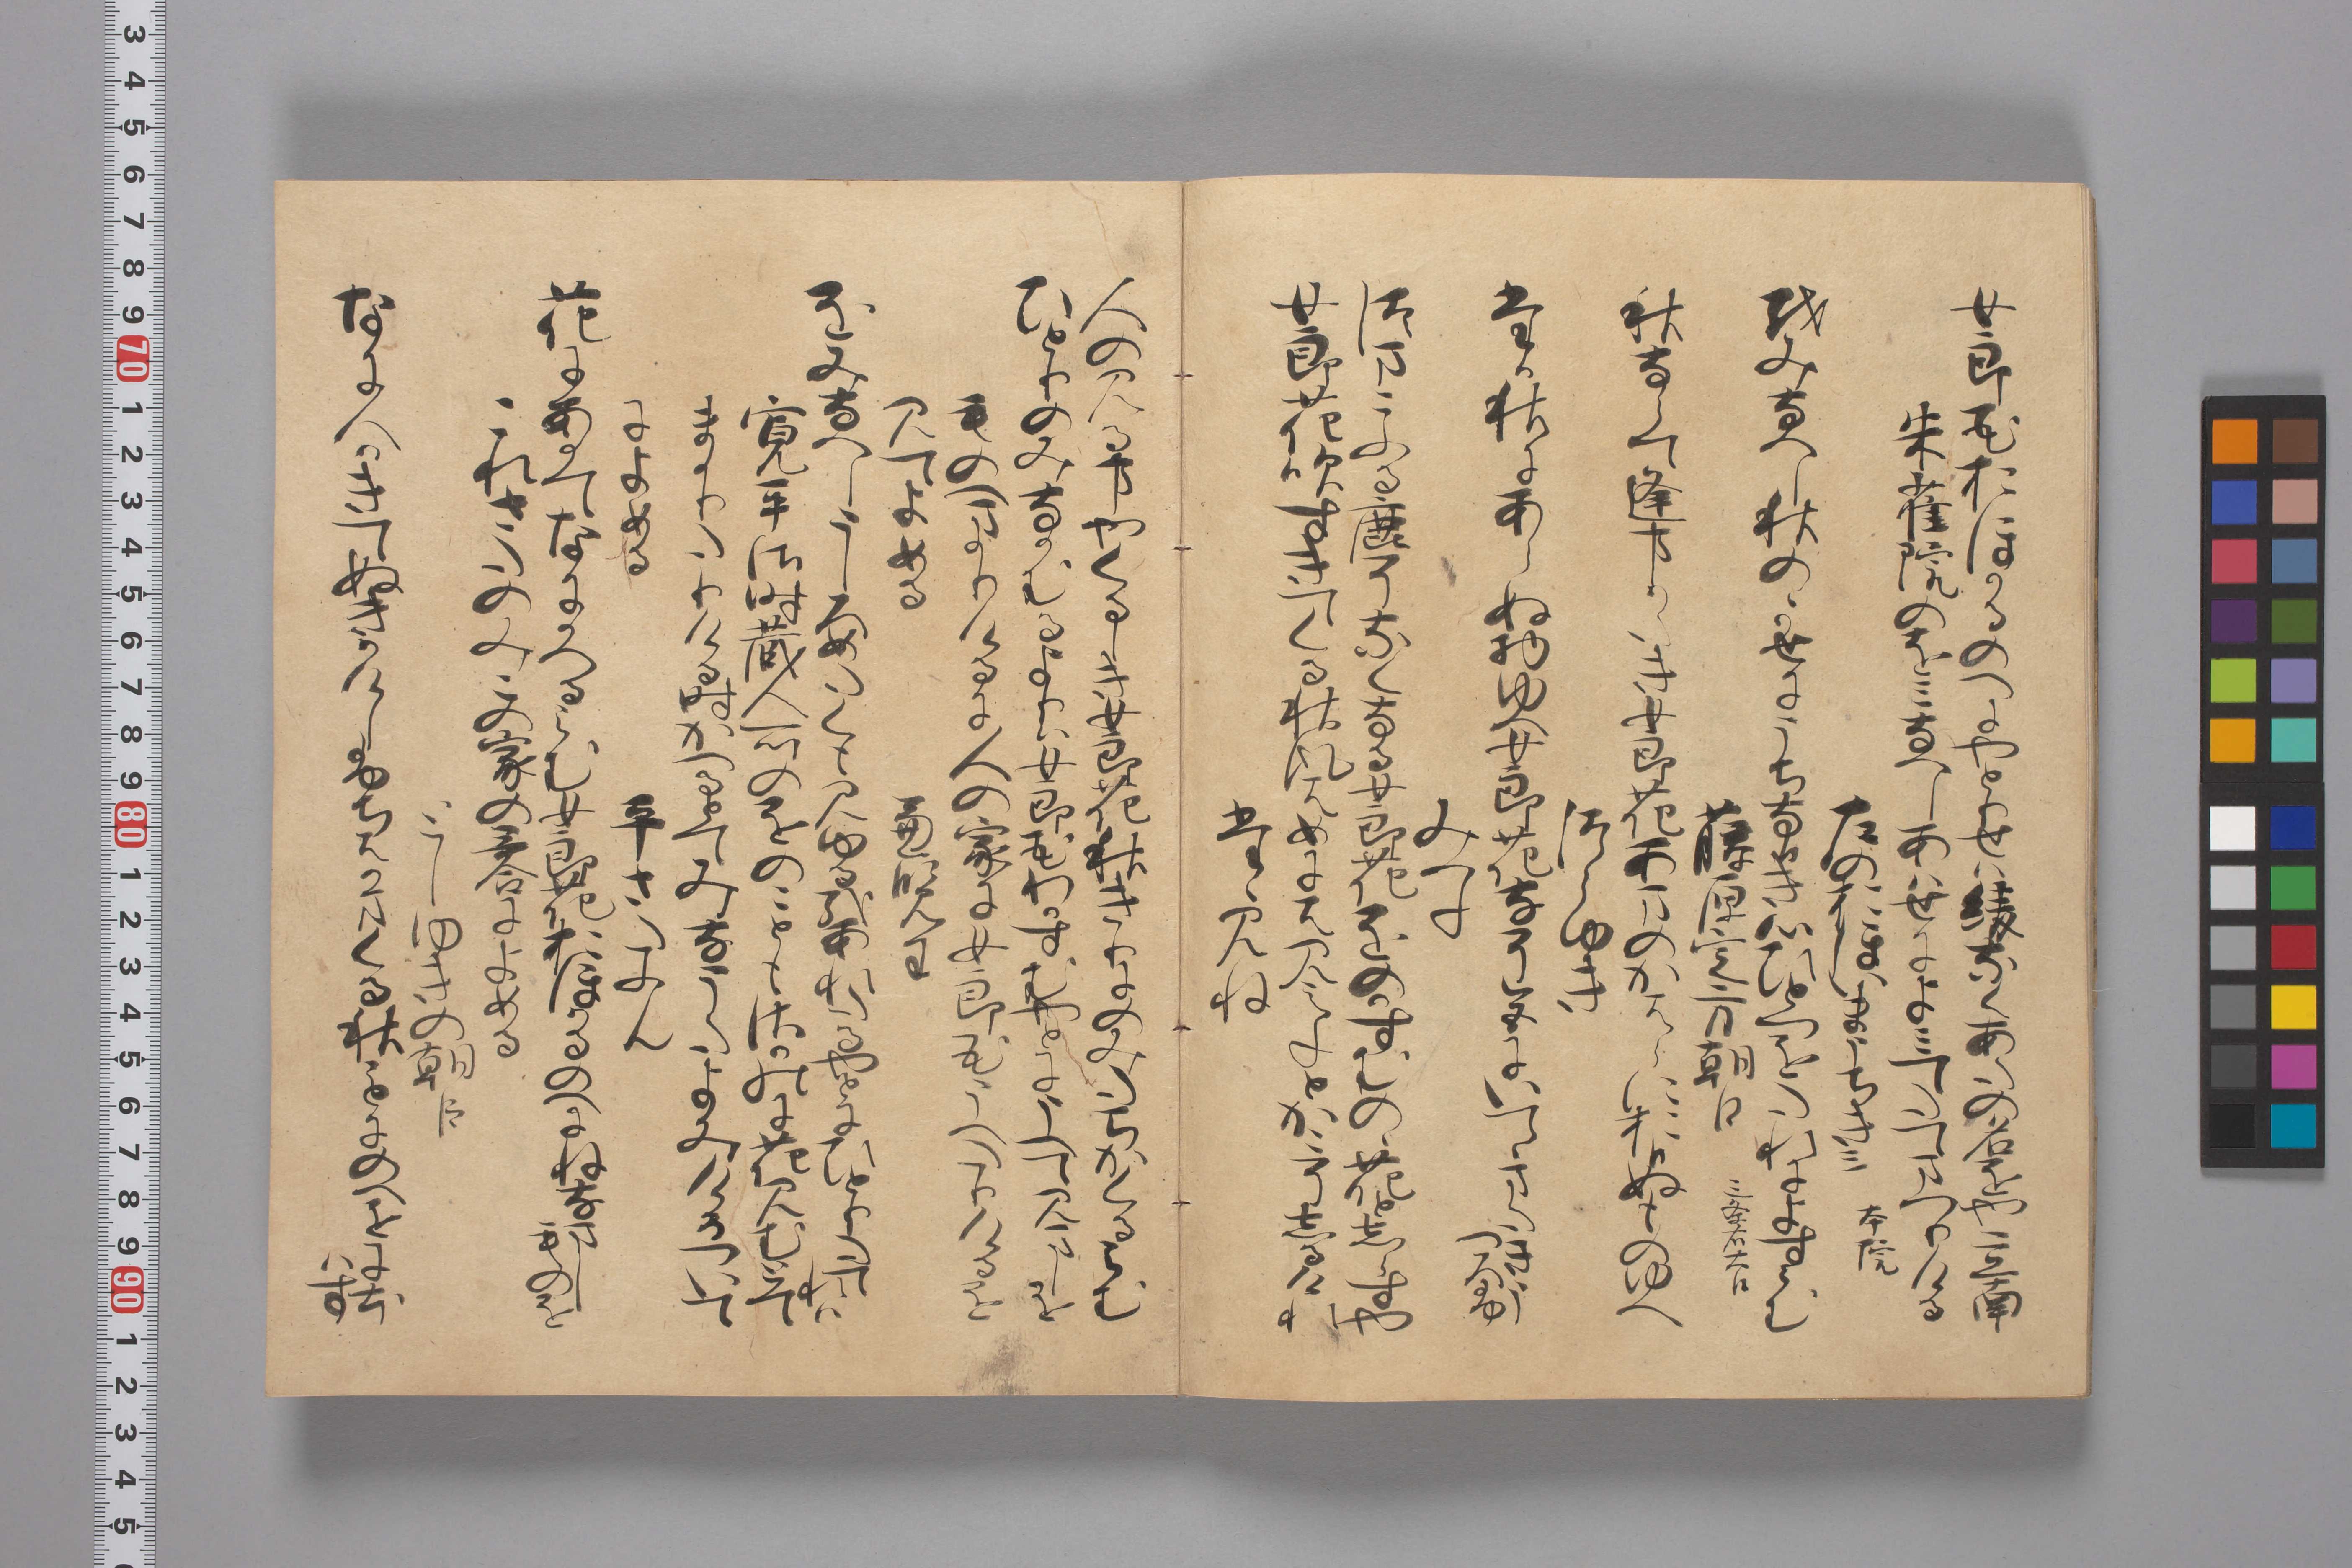 女郎花おほかるのへにやとりせは綾なくあたの名をや立南
朱雀院のをみなへしあはせによみてたてまつりける
左のおほいまうちきみ 本院
をみなへし秋の野風にうちなひき心ひとつをたれによすらむ
藤原定方朝臣 三条右大臣
秋ならて逢ことかたき女郎花あまのかはらにおひぬものゆへ
つらゆき
たか秋にあらぬ物ゆへ女郎花なそ色にいてゝまたきうつろふ
みつね
つまこふる鹿そなくなる女郎花をのかすむのゝ花としらすや
女郎花吹すきてくる秋風はめには見えねとかこそしるけれ
たゝみね
人の見る事やくるしき女郎花秋きりにのみたちかくるらむ
ひとりのみなかむるよりは女郎花わかすむやとにうへてみましを
ものへまかりけるに人の家に女郎花うへたりけるを
見てよめる
兼覧王
をみなへしうしろめたくも見ゆる哉あれたるやとにひとりたてれは
寛平御時蔵人所のをのこともさかのに花見むとて
まかりたりける時かへるとてみな哥よみけるついて
によめる
平さたふん
花にあかてなにかへるらむ女郎花おほかるのへにねなまし物を
これさたのみこの家の哥合によめる
としゆきの朝臣
なに人かきてぬきかけしふちはかまくる秋ことにのへをにほはす